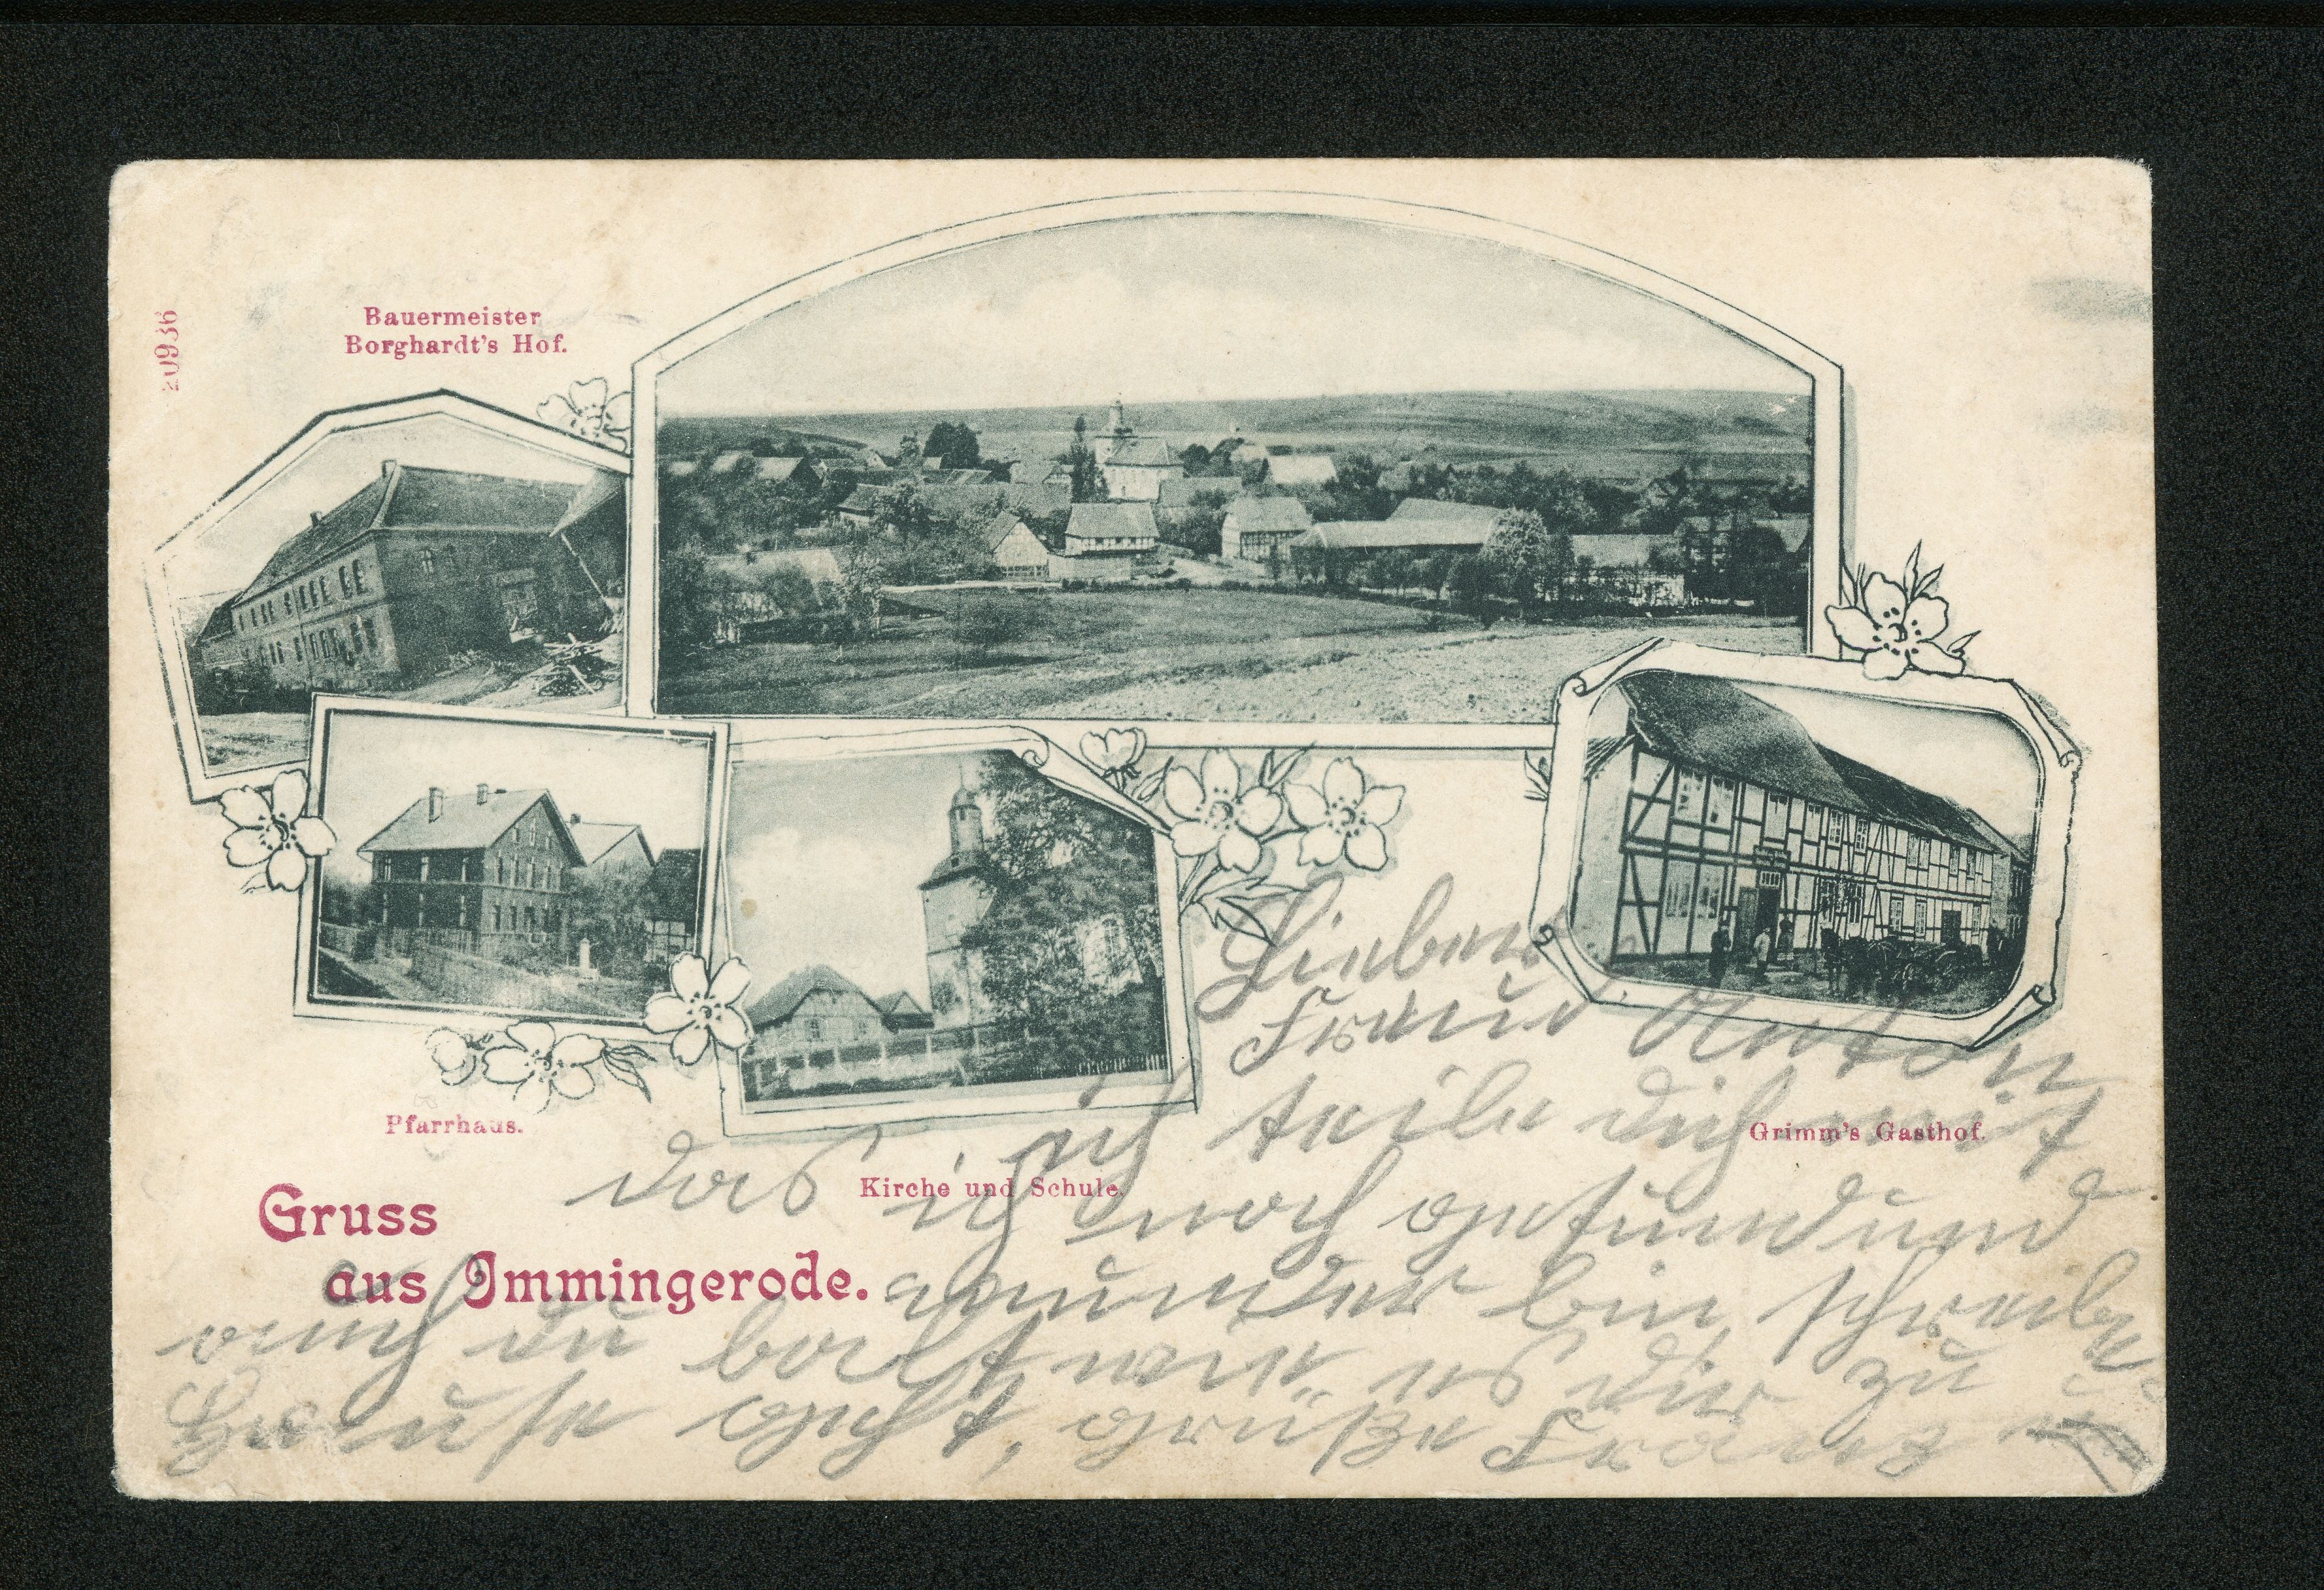 20936
Bauermeister
Borghardt's Hof.
Pfarrhaus.
Kirche und Schule.
Grimm's Gasthof.
Gruss
aus Immingerode.
Lieber
Freund Anton
ich teile dich mit
das ich noch gesund und
munter bin, schreibe
auch du balt wie es dir zu
Hause geht, grüße Franz